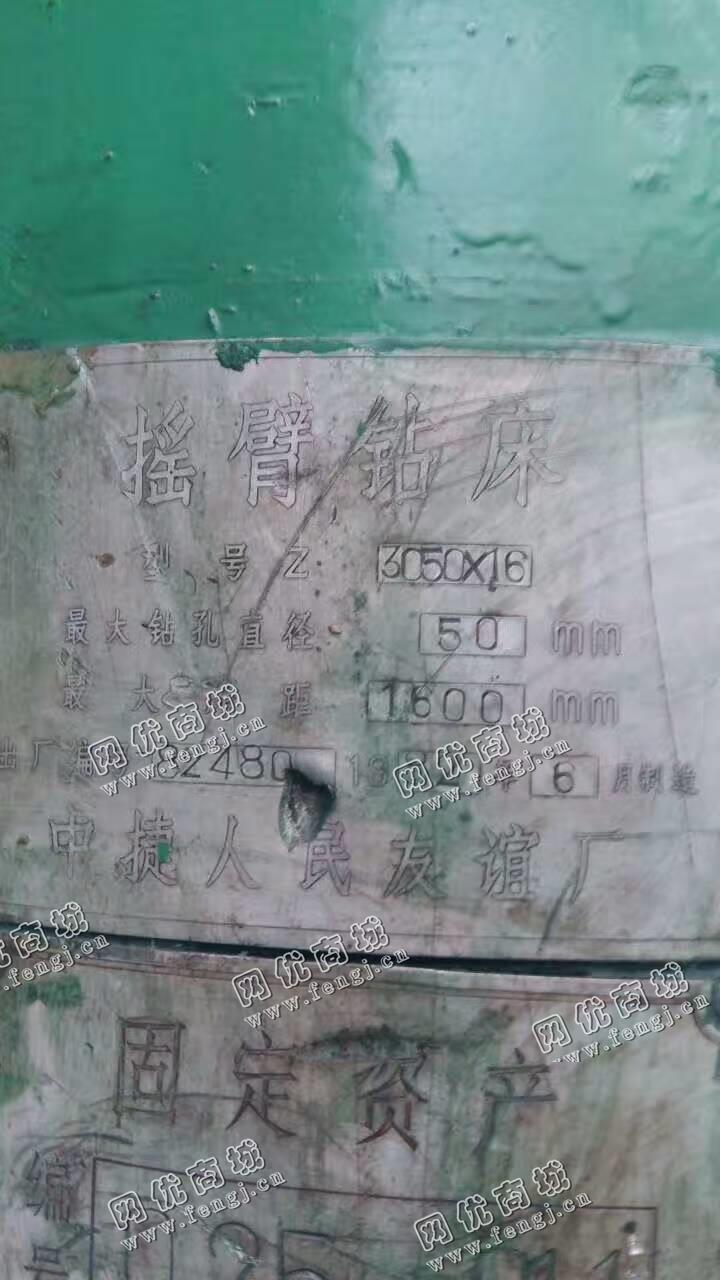 摇臂钻床
型号Z 3050X16
最大钻孔直径 50 mm
最大 距 1600 mm
出厂编 82480 19 年 6 月制造
中捷人民友谊厂
固定资产
编号
网优商城
www.fengj.cn
网优商城
www.fengj.cn
网优商城
www.fengj.cn
网优商城
www.fengj.cn
网优商城
www.fengj.cn
网优商城
www.fengj.cn
网优商城
www.fengj.cn